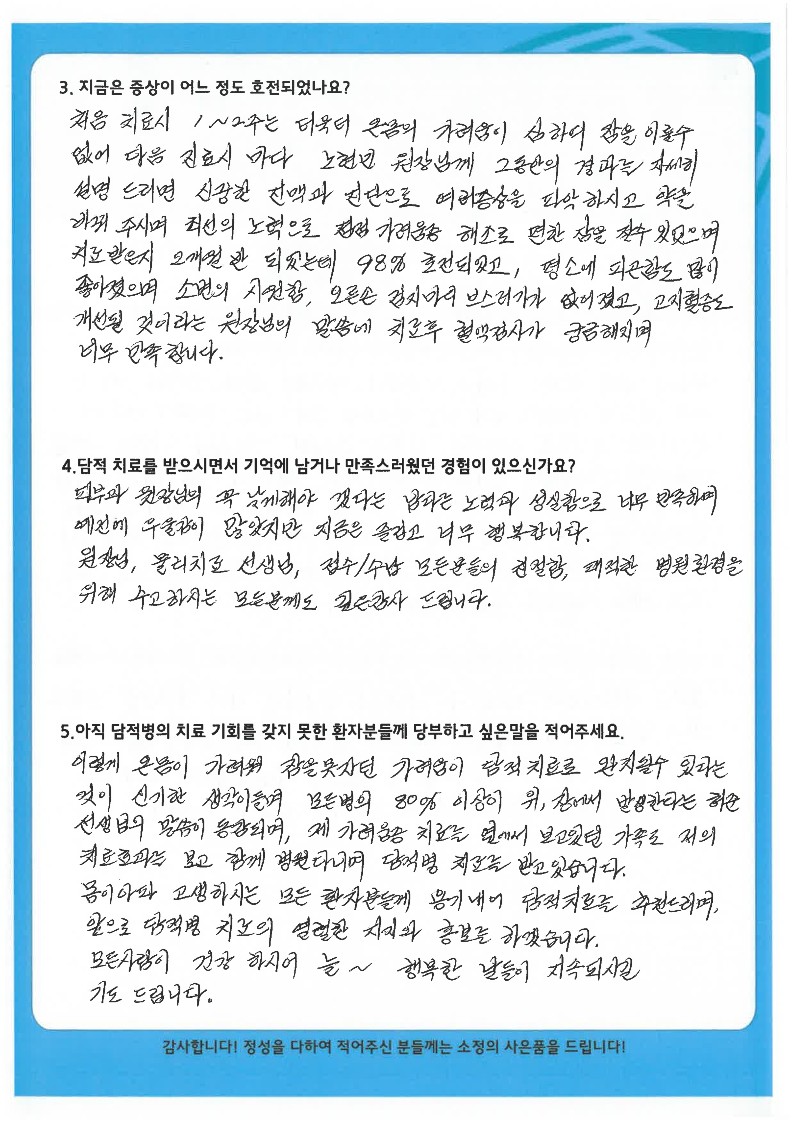 3. 지금은 증상이 어느 정도 호전되었나요?
처음 치료시 1~2주는 더욱더 온몸의 가려움이 심하여 잠을 이룰수
없어 다음 진료시 마다 노현민 원장님께 그동안의 경과를 자세히
설명 드리면 신중한 진맥과 진단으로 여러증상을 파악하시고 약을
바꿔 주시며 최선의 노력으로 점점 가려움증 해소로 편한 잠을 잘수 있었으며
치료받은지 2개월 반 되었는데 98% 호전되었고, 평소에 피곤함도 많이
좋아졌으며 소변의 시원함, 오른손 검지마디 부스러기가 없어졌고, 고지혈증도
개선될 것이라는 원장님의 말씀에 치료후 혈액검사가 궁금해지며
너무 만족합니다.
4.담적 치료를 받으시면서 기억에 남거나 만족스러웠던 경험이 있으신가요?
피부과 원장님의 꼭 낫게해야 겠다는 남다른 노력과 성실함으로 너무 만족하며
예전에 우울감이 많았지만 지금은 즐겁고 너무 행복합니다.
원장님, 물리치료 선생님, 접수/수납 모든분들의 친절함, 쾌적한 병원환경을
위해 수고하시는 모든분께도 깊은감사 드립니다.
5.아직 담적병의 치료 기회를 갖지 못한 환자분들께 당부하고 싶은말을 적어주세요.
이렇게 온몸이 가려워 잠을못자던 가려움이 담적치료로 완치될수 있다는
것이 신기한 생각이들며 모든병의 80% 이상이 위, 장에서 발생한다는 허준
선생님의 말씀이 동감되며, 제 가려움증 치료를 옆에서 보고있던 가족도 저의
치료효과를 보고 함께 병원다니며 담적병 치료를 받고있습니다.
몸이아파 고생하시는 모든 환자분들께 용기내어 담적치료를 추천드리며,
앞으로 담적병 치료의 열렬한 지지와 홍보를 하겠습니다.
모든사람이 건강 하시어 늘~ 행복한 날들이 지속되시길
기도 드립니다.
감사합니다! 정성을 다하여 적어주신 분들께는 소정의 사은품을 드립니다!